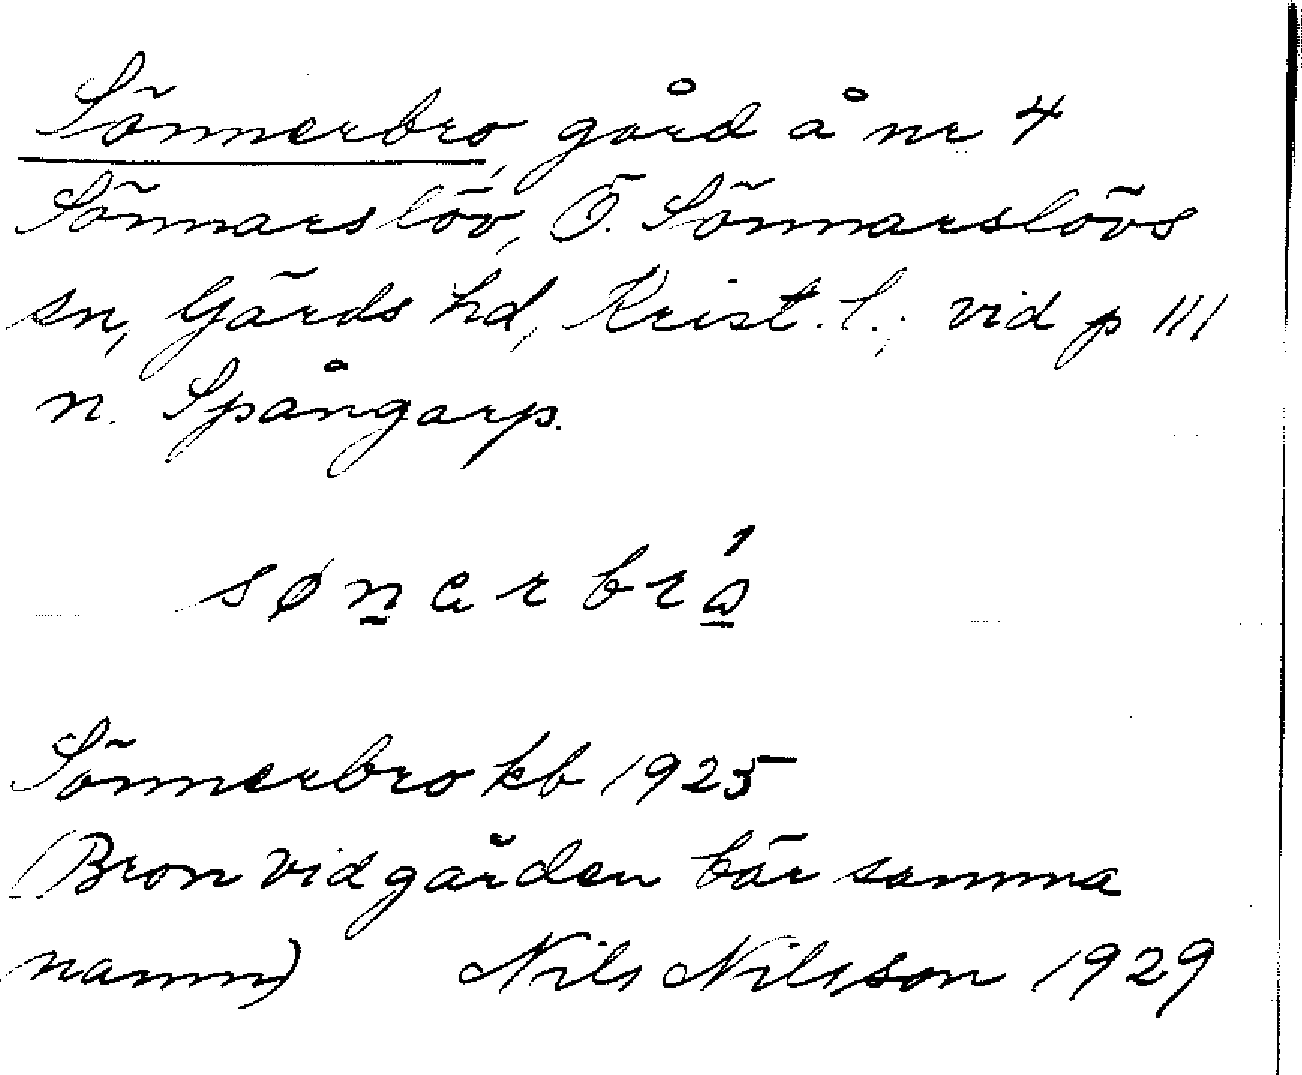 Sönnerbro, gård å nr 4
Sönnarslöv, Ö. Sönnarslövs
sn, Gärds hd, Krist. l.; vid p 111
n. Spångarp.
sønarbrá
Sönnerbro kb 1925
(Bron vid gården bär samma
namn) Nils Nilsson 1929